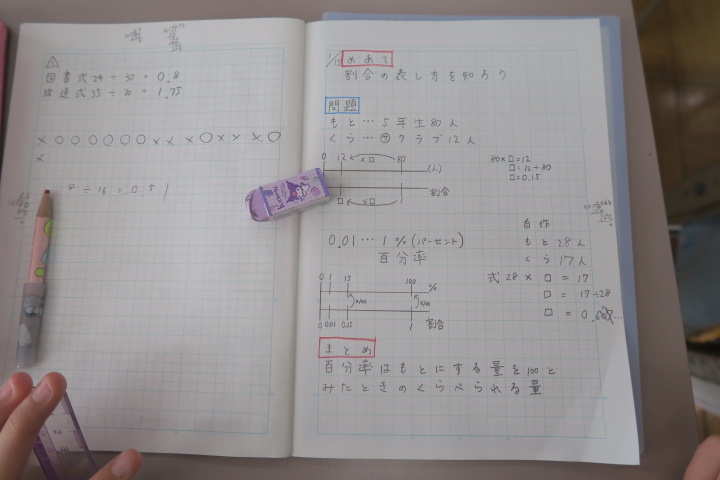 図書式24÷30=0.8
放送式35÷20=1.75
×○○○○○○××○×××○
×
8÷16=0.5
1/15 めあて
割合の表し方を知ろう
問題
もと…5年生80人
くら…サクラブ12人
0 12 ×□ 80 (人)
□ ×□ 1 割合
80×□=12
□=12÷80
□=0.15
0.01…1%(パーセント)
百分率
0 1 15 100 %
×100 ×100
0 0.01 0.15 1 割合
自作
もと28人
くら17人
式28×□=17
□=17÷28
□=0.
まとめ
百分率はもとにする量を100と
みたときのくらべられる量